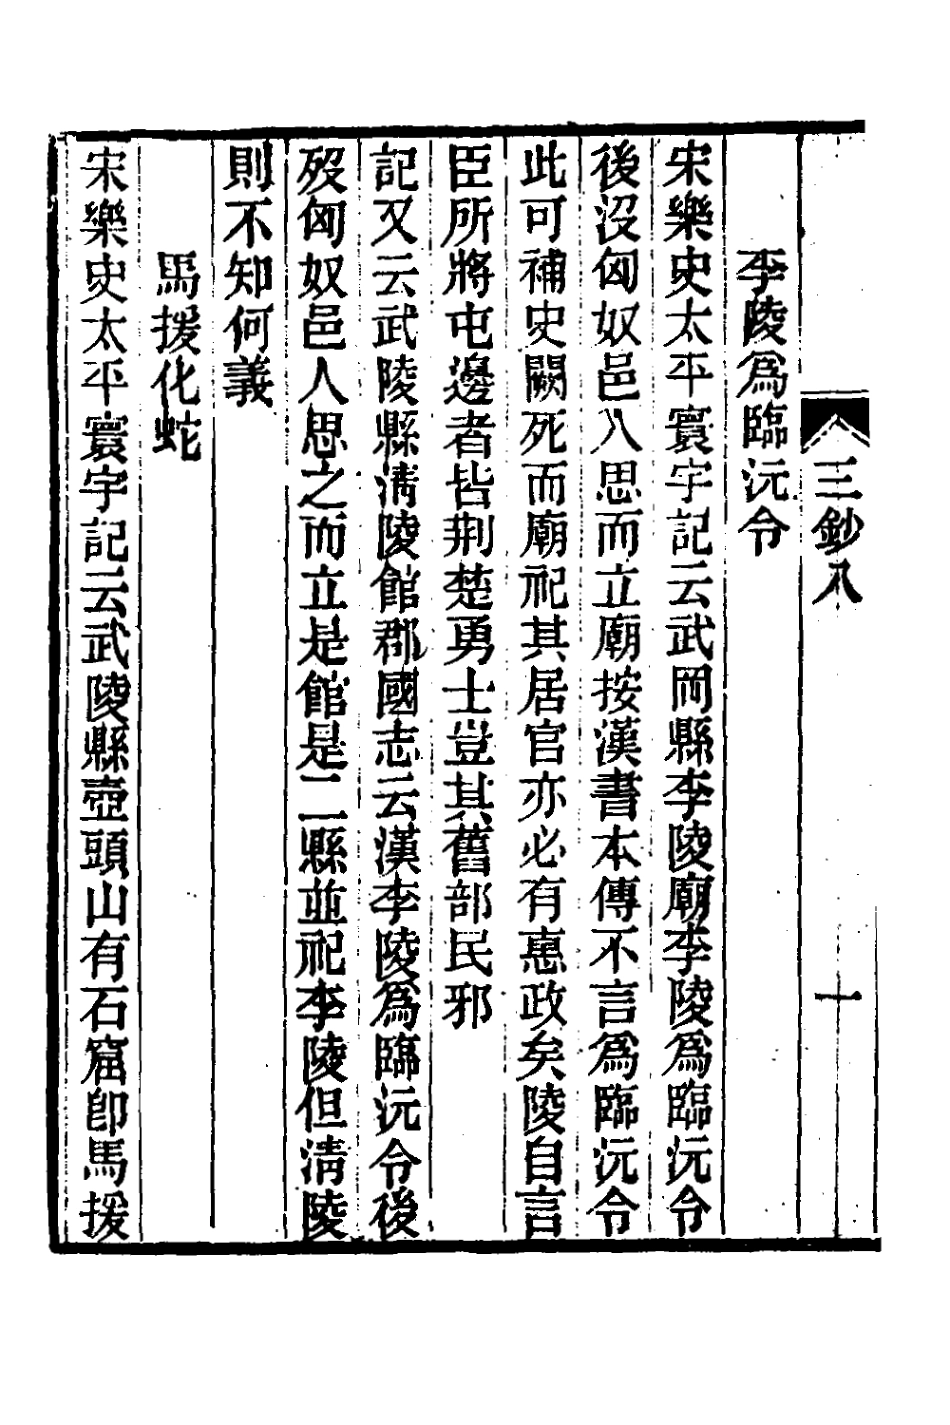 三鈔八
十
李陵爲臨沅令
宋樂史太平寰宇記云武岡縣李陵廟李陵爲臨沅令
後沒匈奴邑人思而立廟按漢書本傳不言爲臨沅令
此可補史闕死而廟祀其居官亦必有惠政矣陵自言
臣所將屯邊者皆荆楚勇士豈其舊部民邪
記又云武陵縣淸陵館郡國志云漢李陵爲臨沅令後
歿匈奴邑人思之而立是館是二縣並祀李陵但淸陵
則不知何義
馬援化蛇
宋樂史太平寰宇記云武陵縣壺頭山有石窟卽馬援